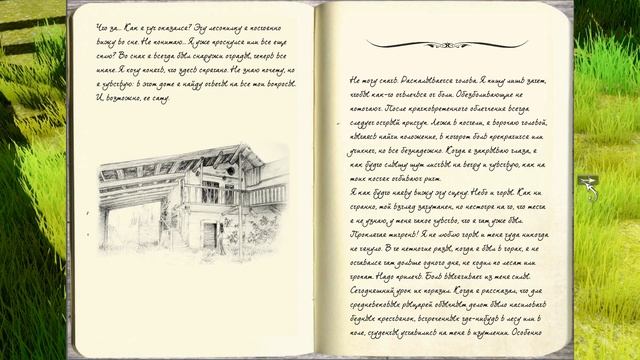 Что за... Как я тут оказался? Эту лесопилку я постоянно
вижу во сне. Не понимаю... Я уже проснулся или все еще
сплю? Во снах я всегда был снаружи ограды, теперь все
иначе. Я хочу понять, что здесь спрятано. Не знаю почему, но
я чувствую: в этом доме я найду ответы на все мои вопросы.
И, возможно, ее саму.
Не могу спать. Раскалывается голова. Я пишу лишь затем,
чтобы как-то отвлечься от боли. Обезболивающие не
помогают. После кратковременного облегчения всегда
следует острый приступ. Лежа в постели, я ворочаю головой,
пытаясь найти положение, в котором боль прекратится или
утихнет, но все безнадежно. Когда я закрываю глаза, я
как будто слышу шум листвы на ветру и чувствую, как на
моих костях отбивают ритм.
Я как будто наяву вижу эту сцену. Небо и горы. Как ни
странно, мой взгляд затуманен, но несмотря на то, что места
я не узнаю, у меня такое чувство, что я там уже был.
Проклятая мигрень! Я не люблю горы и меня туда никогда
не тянуло. В те немногие разы, когда я был в горах, я не
оставался там дольше одного дня, не ходил по лесам или
тропам. Надо прилечь. Боль вытягивает из меня силы.
Сегодняшний урок их поразил. Когда я рассказал, что для
средневековых рыцарей обычным делом было насиловать
бедных крестьянок, встреченных где-нибудь в лесу или в
поле, студенты уставились на меня в изумлении. Особенно